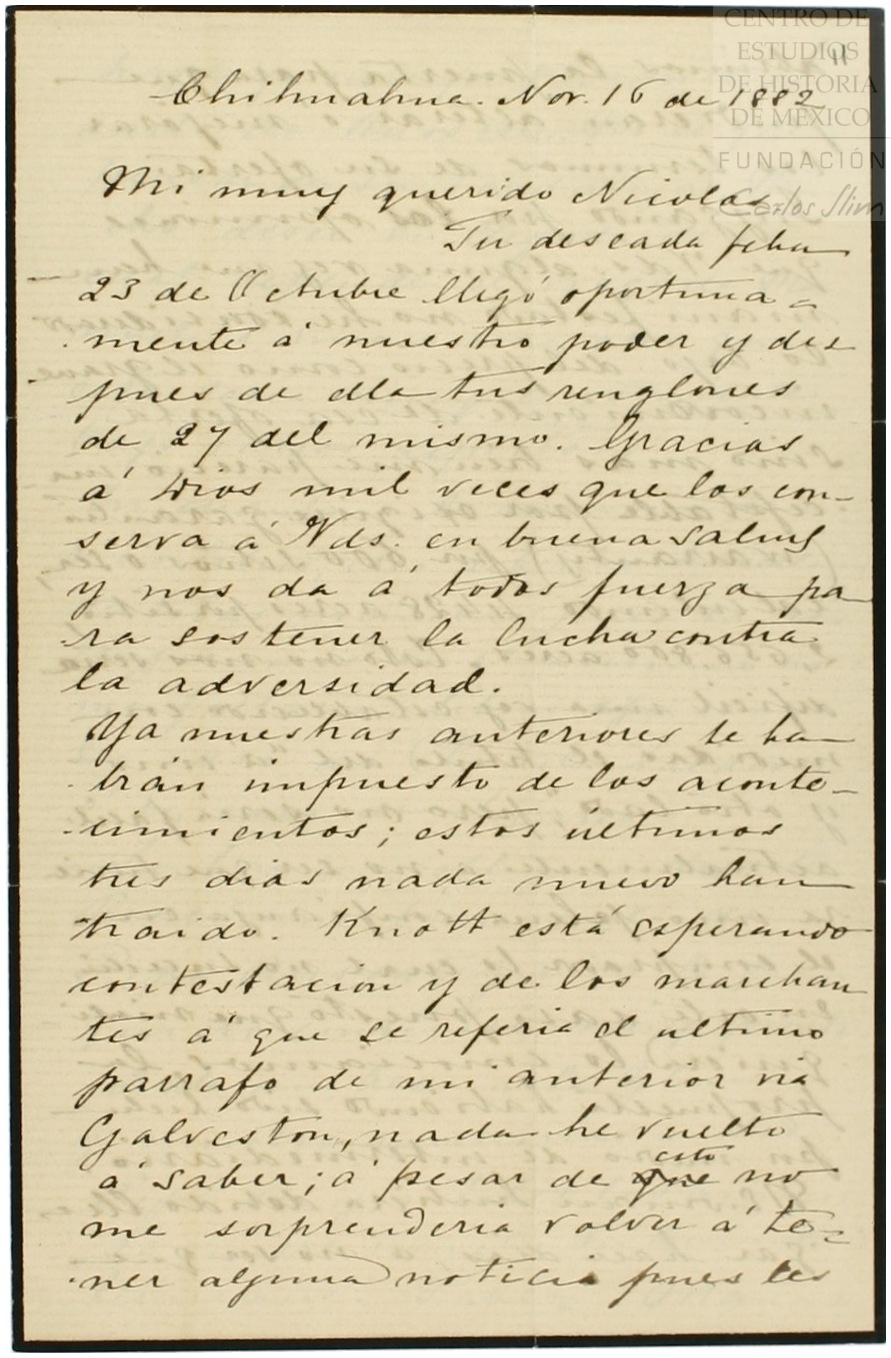 CENTRO DE
ESTUDIOS
DE HISTORIA
DE MÉXICO
FUNDACIÓN
Carlos Slim
11
Chihuahua. Nov. 16 de 1882
Mi muy querido Nicolas
Tu deseada fcha
23 de Octubre llegó oportuna-
mente á nuestro poder y des
pues de ella tus renglones
de 27 del mismo. Gracias
á Dios mil veces que los con-
serva á Vds. en buena salud
y nos da á todos fuerza pa
ra sostener la lucha contra
la adversidad.
Ya nuestras anteriores te ha-
brán impuesto de los aconte-
cimientos; estos últimos
tres dias nada nuevo han
traido. Knott está esperando
contestacion y de los marchan
tes á que se referia el ultimo
parrafo de mi anterior via
Galveston, nada he vuelto
á saber; á pesar de esto no
me sorprenderia volver á te-
ner alguna noticia pues les